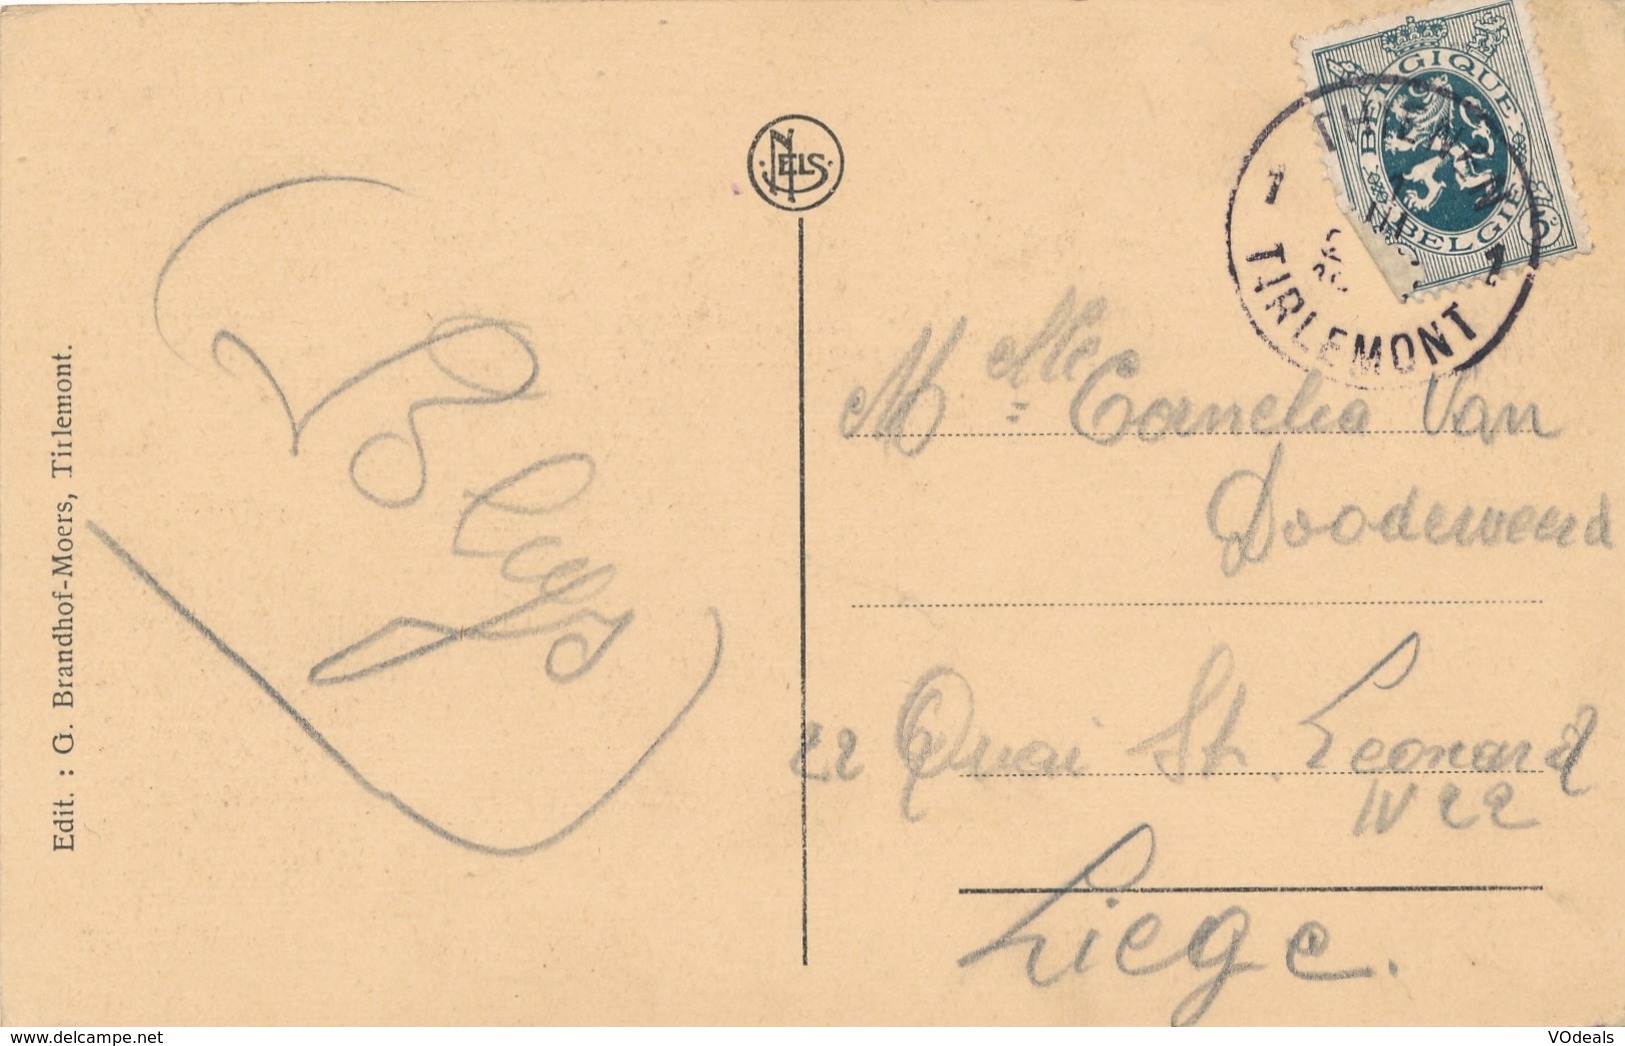 Edit. : G. Brandhof-Moers, Tirlemont.
NELS
BELGIQUE
BELGIË
TIENEN
1 1
TIRLEMONT
Mlle Cornelia Van
Doodeweerd
22 Quai St. Leonard
IV 22
Liege.
www.delcampe.net
VOdeals